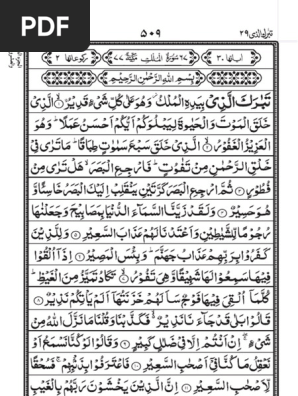 PDF
تبٰرك الذی ۲۹
۵۰۹
اٰیاتها ۳۰
۶۷ سُوْرَةُ الْمُلْكِ مَكِّیَّةٌ ۷۷
رکوعاتها ۲
بِسْمِ اللّٰهِ الرَّحْمٰنِ الرَّحِیْمِ
تَبٰرَكَ الَّذِیْ بِیَدِهِ الْمُلْكُ وَهُوَ عَلٰی كُلِّ شَیْءٍ قَدِیْرُ ۙ الَّذِیْ
خَلَقَ الْمَوْتَ وَالْحَیٰوةَ لِیَبْلُوَكُمْ اَیُّكُمْ اَحْسَنُ عَمَلًا ؕ وَهُوَ
الْعَزِیْزُ الْغَفُوْرُ ۙ الَّذِیْ خَلَقَ سَبْعَ سَمٰوٰتٍ طِبَاقًا ؕ مَا تَرٰی فِیْ
خَلْقِ الرَّحْمٰنِ مِنْ تَفٰوُتٍ ؕ فَارْجِعِ الْبَصَرَ ۙ هَلْ تَرٰی مِنْ
فُطُوْرٍ ثُمَّ ارْجِعِ الْبَصَرَ كَرَّتَیْنِ یَنْقَلِبْ اِلَیْكَ الْبَصَرُ خَاسِئًا وَّ
هُوَ حَسِیْرٌ وَلَقَدْ زَیَّنَّا السَّمَآءَ الدُّنْیَا بِمَصَابِیْحَ وَجَعَلْنٰهَا
رُجُوْمًا لِّلشَّیٰطِیْنِ وَاَعْتَدْنَا لَهُمْ عَذَابَ السَّعِیْرِ وَلِلَّذِیْنَ
كَفَرُوْا بِرَبِّهِمْ عَذَابُ جَهَنَّمَ ؕ وَبِئْسَ الْمَصِیْرُ اِذَآ اُلْقُوْا
فِیْهَا سَمِعُوْا لَهَا شَهِیْقًا وَّهِیَ تَفُوْرُ ۙ تَكَادُ تَمَیَّزُ مِنَ الْغَیْظِ ؕ
كُلَّمَآ اُلْقِیَ فِیْهَا فَوْجٌ سَاَلَهُمْ خَزَنَتُهَآ اَلَمْ یَاْتِكُمْ نَذِیْرٌ
قَالُوْا بَلٰی قَدْ جَآءَنَا نَذِیْرٌ ۙ فَكَذَّبْنَا وَقُلْنَا مَا نَزَّلَ اللّٰهُ مِنْ
شَیْءٍ ۖ اِنْ اَنْتُمْ اِلَّا فِیْ ضَلٰلٍ كَبِیْرٍ وَقَالُوْا لَوْ كُنَّا نَسْمَعُ اَوْ
نَعْقِلُ مَا كُنَّا فِیْٓ اَصْحٰبِ السَّعِیْرِ فَاعْتَرَفُوْا بِذَنْۢبِهِمْ ۚ فَسُحْقًا
لِّاَصْحٰبِ السَّعِیْرِ اِنَّ الَّذِیْنَ یَخْشَوْنَ رَبَّهُمْ بِالْغَیْبِ